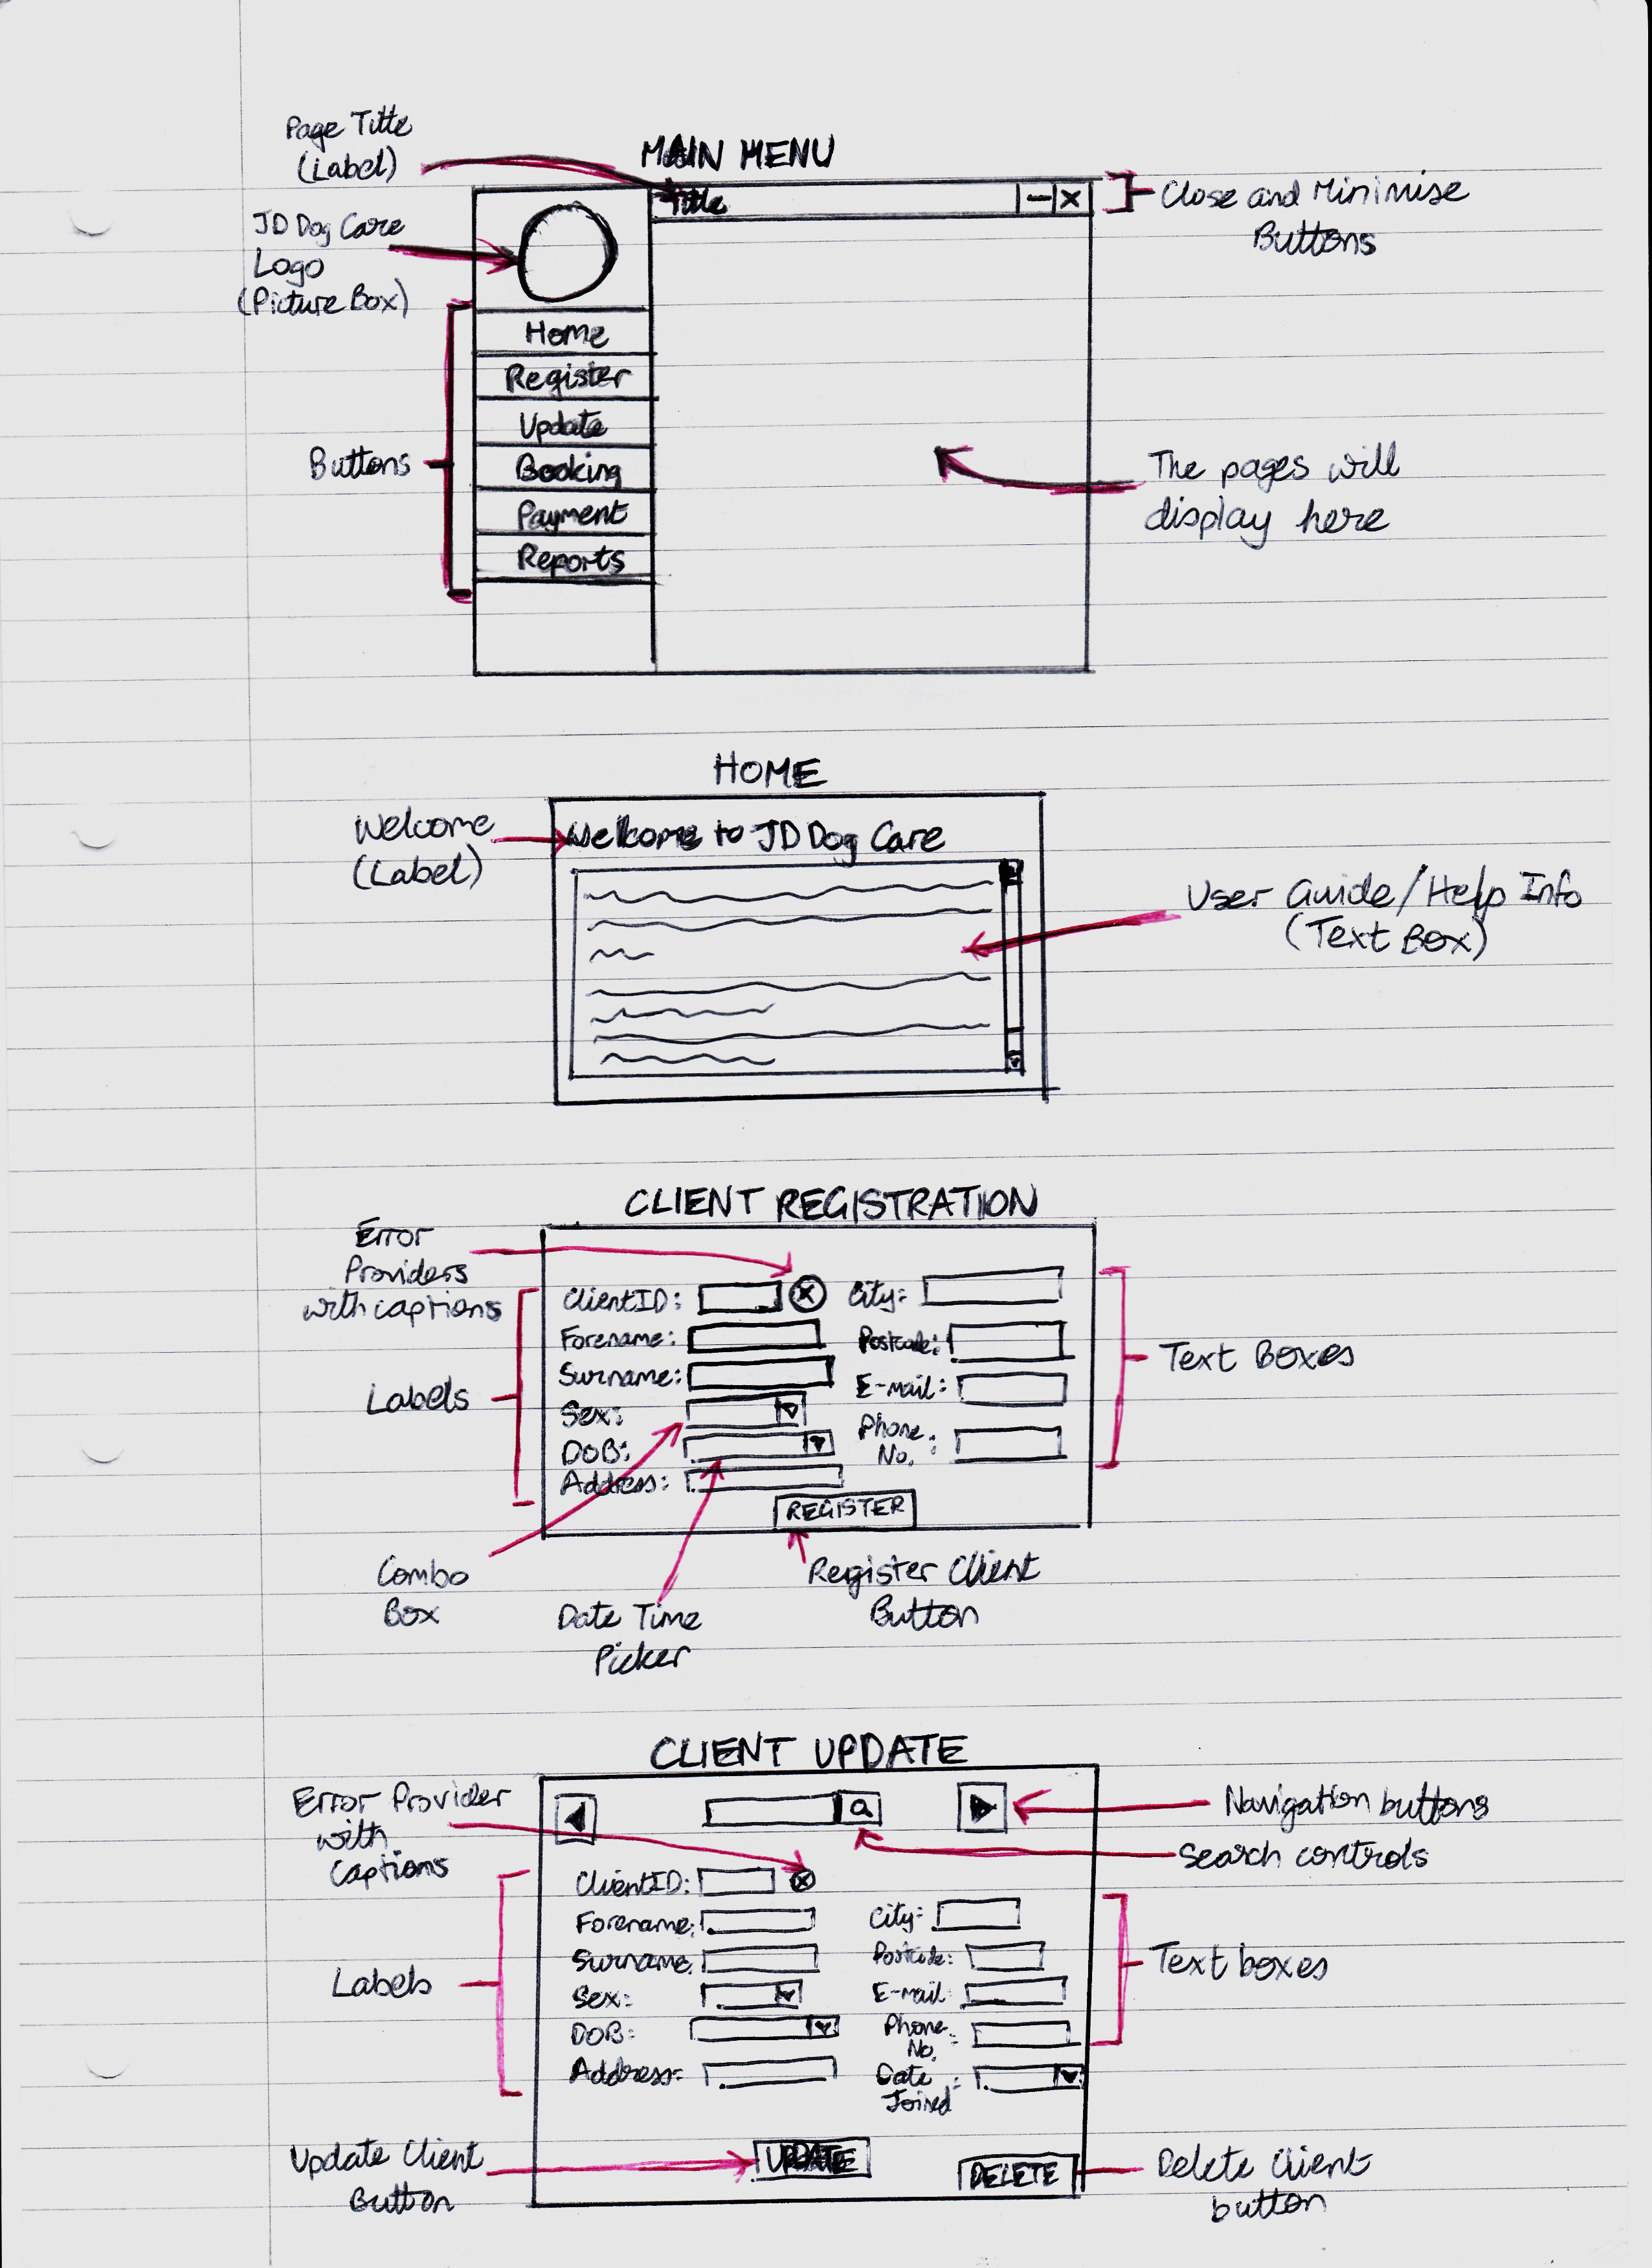 Page Title
(Label)
MAIN MENU
Title
Close and Minimise
Buttons
JD Dog Care
Logo
(Picture Box)
Home
Register
Update
Booking
Payment
Reports
Buttons
The pages will
display here
HOME
Welcome
(Label)
Welcome to JD Dog Care
User Guide/Help Info
(Text Box)
CLIENT REGISTRATION
Error
Providers
with captions
ClientID:
Forename:
Surname:
Sex:
DOB:
Address:
City:
Postcode:
E-mail:
Phone
No. :
REGISTER
Labels
Text Boxes
Combo
Box
Date Time
Picker
Register Client
Button
CLIENT UPDATE
Error Provider
with
Captions
Navigation buttons
Search controls
ClientID:
Forename:
Surname:
Sex:
DOB:
Address:
City:
Postcode:
E-mail:
Phone :
No.
Date :
Joined
Labels
Text boxes
UPDATE
DELETE
Update Client
Button
Delete Client
button